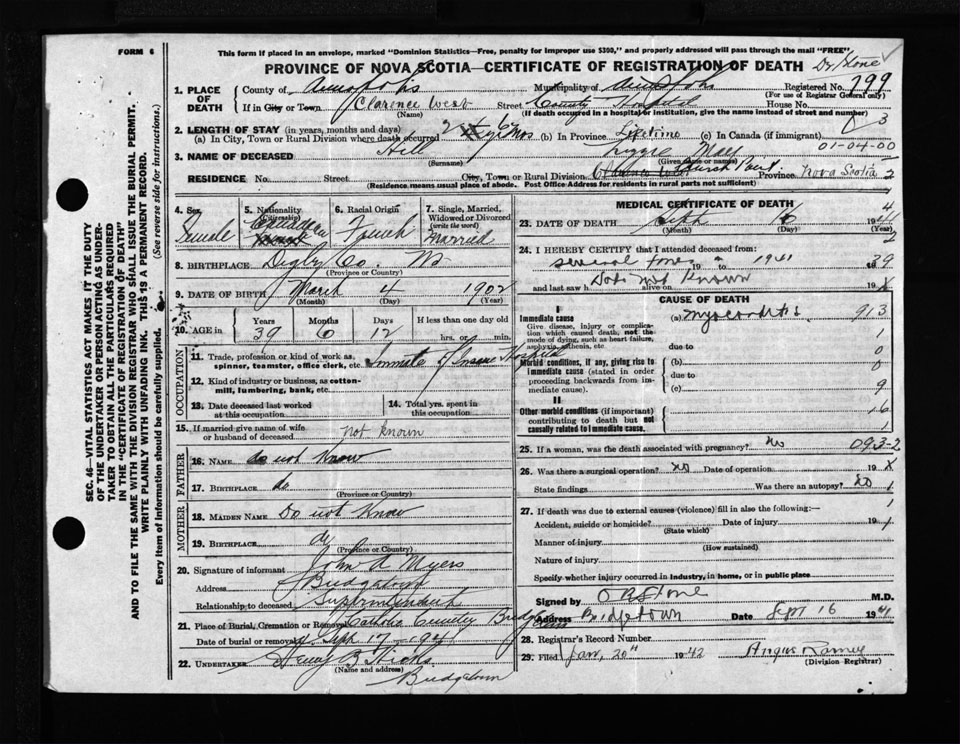 FORM 6
This form if placed in an envelope, marked "Dominion Statistics—Free, penalty for improper use $300," and properly addressed will pass through the mail "FREE"
PROVINCE OF NOVA SCOTIA—CERTIFICATE OF REGISTRATION OF DEATH
Dr Stone
1. PLACE OF DEATH
County of Annapolis Municipality of Annapolis Registered No. 799
(For use of Registrar General only)
If in City or Town Clarence West Street County Hospital House No.
(Name) (If death occurred in a hospital or institution, give the name instead of street and number)
3
2. LENGTH OF STAY (in years, months and days)
(a) In City, Town or Rural Division where death occurred 2 6 mos (b) In Province Lifetime (c) In Canada (if immigrant)
01-04-00
3. NAME OF DECEASED Hill Lizzie May
(Surname) (Given name or names)
RESIDENCE No. Street City, Town or Rural Division Church Point Province Nova Scotia 2
(Residence means usual place of abode. Post Office Address for residents in rural parts not sufficient)
4. Sex Female
5. Nationality (Citizenship) Canadian
6. Racial Origin French
7. Single, Married, Widowed or Divorced (write the word) Married
8. BIRTHPLACE Digby Co. NS
(Province or Country)
9. DATE OF BIRTH March 4 1902
(Month) (Day) (Year)
10. AGE in Years Months Days If less than one day old
39 6 12 hrs. or min.
OCCUPATION
11. Trade, profession or kind of work as spinner, teamster, office clerk, etc. Inmate of Insane Hospital
12. Kind of industry or business, as cotton-mill, lumbering, bank, etc.
13. Date deceased last worked at this occupation
14. Total yrs. spent in this occupation
15. If married give name of wife or husband of deceased not known
FATHER
16. NAME do not Know
17. BIRTHPLACE do
(Province or Country)
MOTHER
18. MAIDEN NAME Do not Know
19. BIRTHPLACE do
(Province or Country)
20. Signature of informant John A Myers
Address Bridgetown
Relationship to deceased Superintendent
21. Place of Burial, Cremation or Removal Catholic Cemetery
Date of burial or removal Sept 17 - 1941
22. UNDERTAKER Hicks
(Name and address)
Bridgetown
MEDICAL CERTIFICATE OF DEATH
23. DATE OF DEATH Sept 16 1941
(Month) (Day) (Year)
24. I HEREBY CERTIFY that I attended deceased from:
several times 19 to 1941 39
and last saw h alive on Date not Known 19
CAUSE OF DEATH
I
Immediate cause
Give disease, injury or complication which caused death, not the mode of dying, such as heart failure, asphyxia, asthenia, etc.
(a) Myocarditis 913
due to
Morbid conditions, if any, giving rise to immediate cause (stated in order proceeding backwards from immediate cause).
(b)
due to
(c) 9
II
Other morbid conditions (if important) contributing to death but not causally related to immediate cause.
16
25. If a woman, was the death associated with pregnancy? No 093-2
26. Was there a surgical operation? No Date of operation 19
State findings Was there an autopsy? No 1
27. If death was due to external causes (violence) fill in also the following:—
Accident, suicide or homicide? Date of injury 19
(State which)
Manner of injury
(How sustained)
Nature of injury
Specify whether injury occurred in industry, in home, or in public place
Signed by Stone M.D.
Address Bridgetown Date Sept 16 1941
28. Registrar's Record Number
29. Filed Jan. 20th 1942 Angus Ramey
(Division Registrar)
SEC. 46—VITAL STATISTICS ACT MAKES IT THE DUTY
OF THE UNDERTAKER OR PERSON ACTING AS UNDERTAKER
TO OBTAIN ALL THE PARTICULARS REQUIRED
IN THE "CERTIFICATE OF REGISTRATION OF DEATH"
AND TO FILE THE SAME WITH THE DIVISION REGISTRAR WHO SHALL ISSUE THE BURIAL PERMIT.
WRITE PLAINLY WITH UNFADING INK. THIS IS A PERMANENT RECORD.
Every item of Information should be carefully supplied. (See reverse side for instructions.)